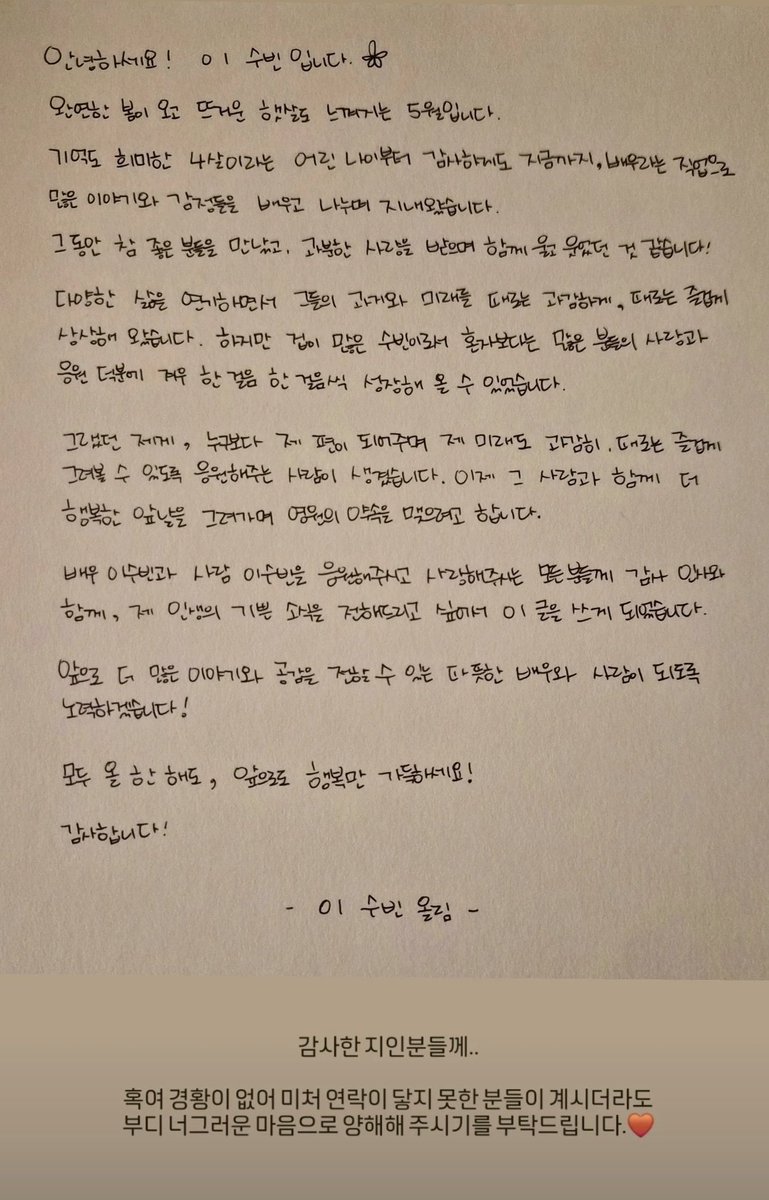 안녕하세요! 이 수빈입니다.
완연한 봄이 오고 뜨거운 햇살도 느껴지는 5월입니다.
기억도 희미한 4살이라는 어린 나이부터 감사하게도 지금까지, 배우라는 직업으로
많은 이야기와 감정들을 배우고 나누며 지내왔습니다.
그동안 참 좋은 분들을 만났고, 과분한 사랑을 받으며 함께 울고 웃었던 것 같습니다!
다양한 삶을 연기하면서 그들의 과거와 미래를 때로는 과감하게, 때로는 즐겁게
상상해 왔습니다. 하지만 겁이 많은 수빈이로서 혼자보다는 많은 분들의 사랑과
응원 덕분에 겨우 한 걸음 한 걸음씩 성장해 올 수 있었습니다.
그랬던 제게, 누구보다 제 편이 되어주며 제 미래도 과감히, 때로는 즐겁게
그려볼 수 있도록 응원해주는 사람이 생겼습니다. 이제 그 사람과 함께 더
행복한 앞날을 그려가며 영원의 약속을 맺으려고 합니다.
배우 이수빈과 사람 이수빈을 응원해주시고 사랑해주시는 모든분들께 감사 인사와
함께, 제 인생의 기쁜 소식을 전해드리고 싶어서 이 글을 쓰게 되었습니다.
앞으로 더 많은 이야기와 공감을 전할 수 있는 따뜻한 배우와 사람이 되도록
노력하겠습니다!
모두 올 한 해도, 앞으로도 행복만 가득하세요!
감사합니다!
- 이 수빈 올림 -
감사한 지인분들께..
혹여 경황이 없어 미처 연락이 닿지 못한 분들이 계시더라도
부디 너그러운 마음으로 양해해 주시기를 부탁드립니다.❤️